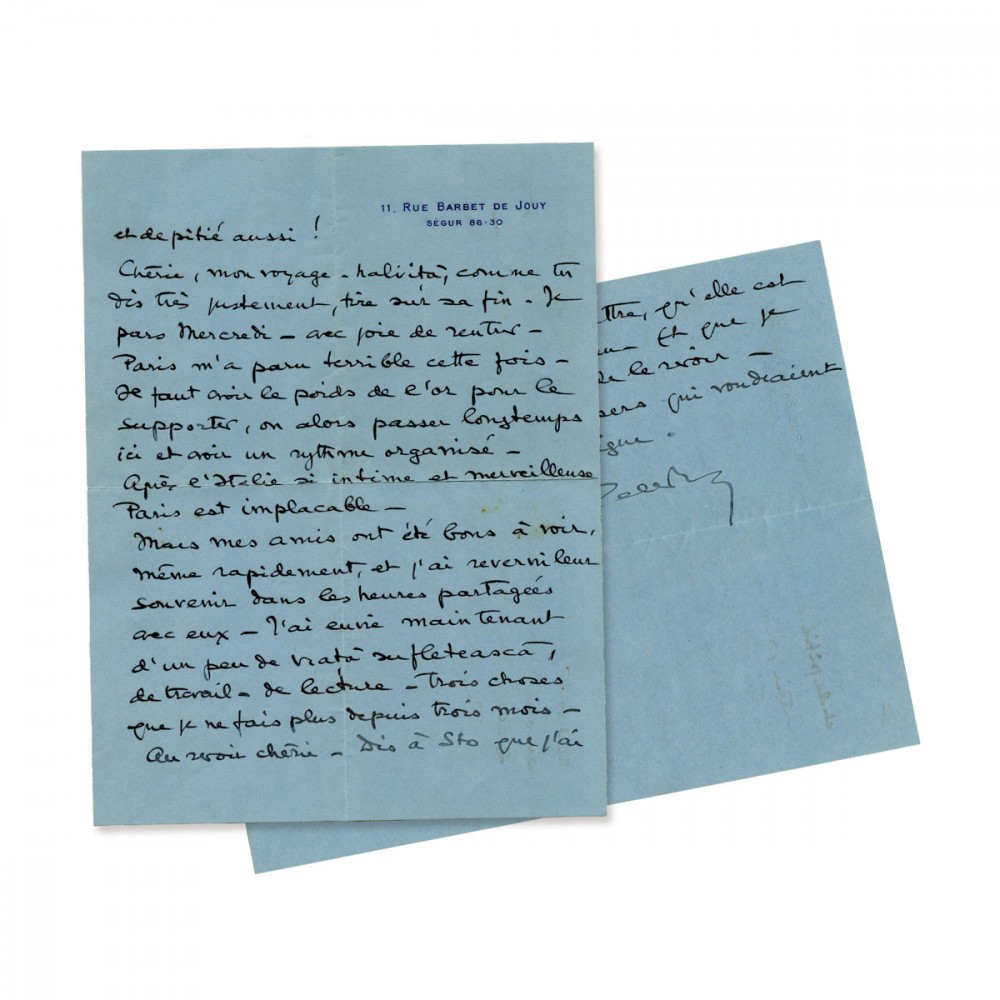 11, RUE BARBET DE JOUY
SÉGUR 86-30
et de pitié aussi !
Chérie, mon voyage - halvità, comme tu
dis très justement, tire sur sa fin - Je
pars Mercredi - avec joie de rentrer -
Paris m'a paru terrible cette fois -
Il faut avoir le poids de l'or pour le
supporter, ou alors passer longtemps
ici et avoir un rythme organisé -
Après l'Italie si intime et merveilleuse
Paris est implacable -
Mais mes amis ont été bons à voir,
même rapidement, et j'ai reverni leur
souvenir dans les heures partagées
avec eux - J'ai envie maintenant
d'un peu de viată sufletească,
de travail - de lecture - Trois choses
que je ne fais plus depuis trois mois -
Au revoir chérie - Dis à Sto que j'ai
ttre, qu'elle est
Et que je
de le revoir -
sers qui voudraient
igne.